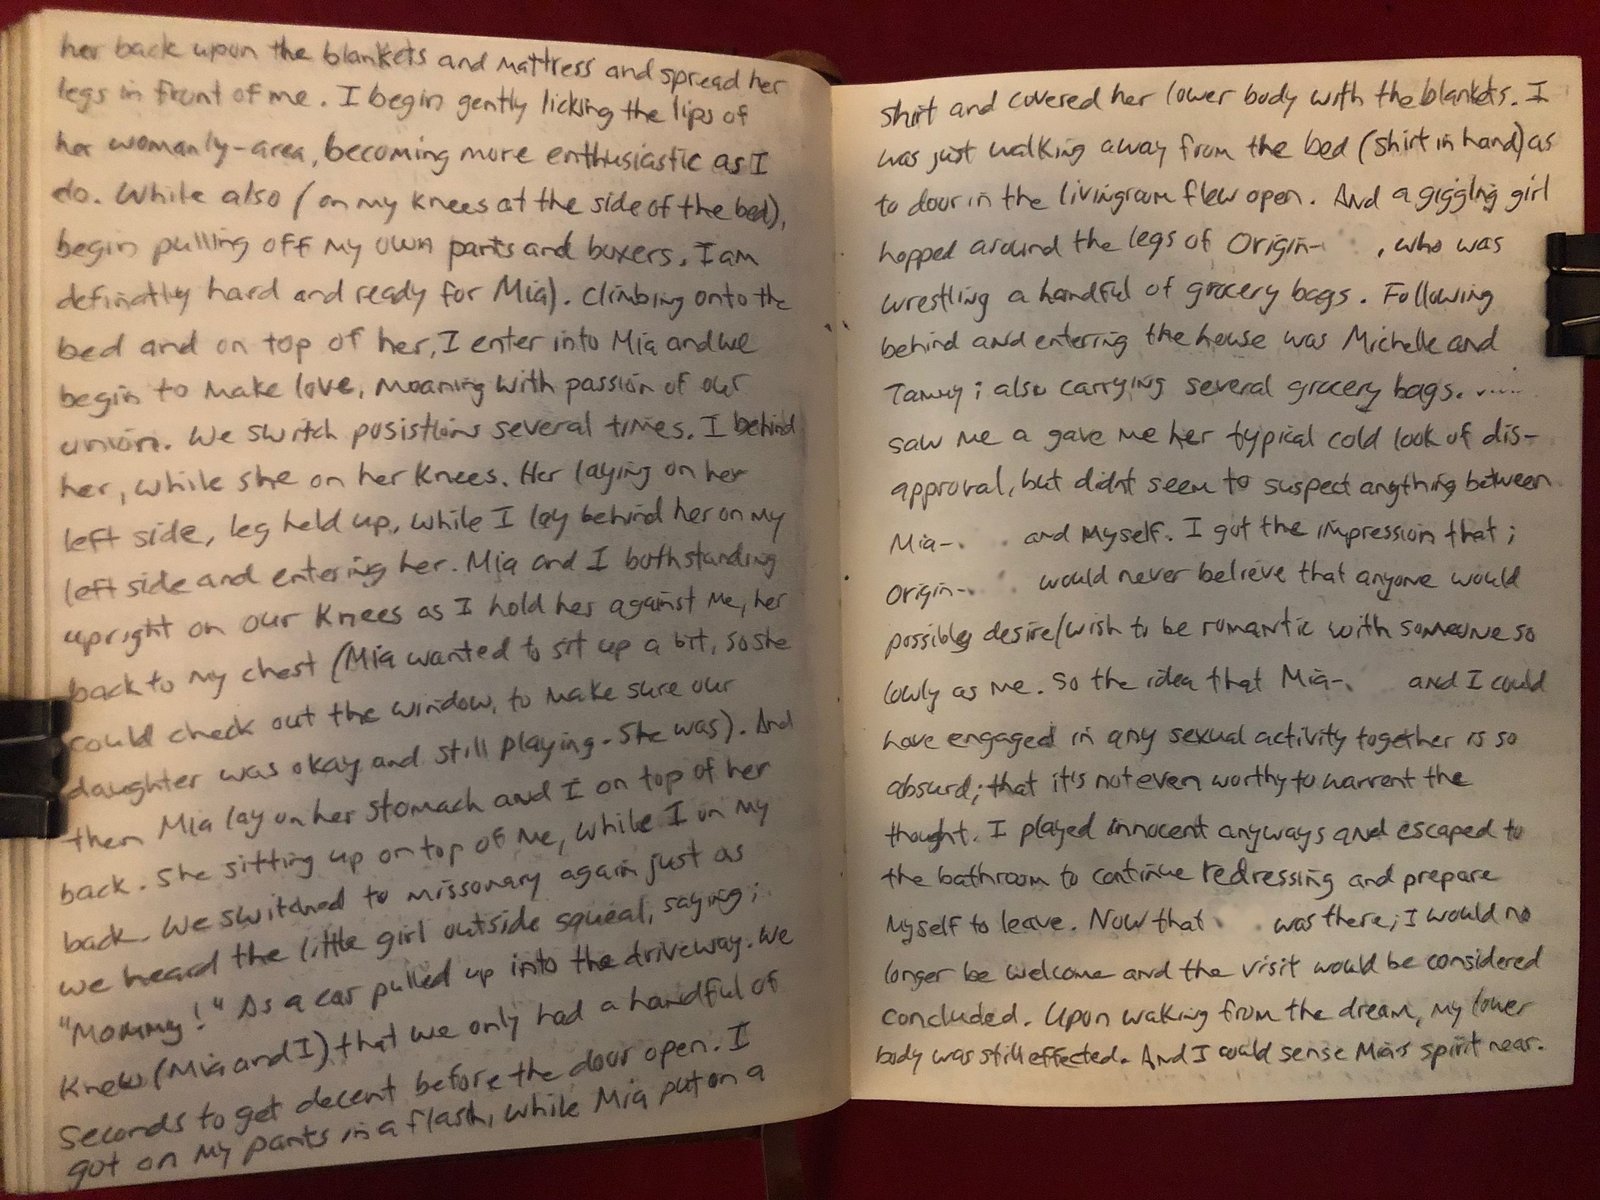 her back upon the blankets and mattress and spread her
legs in front of me. I begin gently licking the lips of
her womanly-area, becoming more enthusiastic as I
do. While also (on my knees at the side of the bed),
begin pulling off my own pants and boxers. I am
definatly hard and ready for Mia). Climbing onto the
bed and on top of her, I enter into Mia and we
begin to make love, moaning with passion of our
union. We switch posistions several times. I behind
her, while she on her knees. Her laying on her
left side, leg held up, while I lay behind her on my
left side and entering her. Mia and I both standing
upright on our knees as I hold her against me, her
back to my chest (Mia wanted to sit up a bit, so she
could check out the window, to make sure our
daughter was okay and still playing. She was). And
then Mia lay on her stomach and I on top of her
back. She sitting up on top of me, while I on my
back. We switched to missonary again just as
we heard the little girl outside squeal, saying;
"Mommy!" As a car pulled up into the driveway. We
knew (Mia and I) that we only had a handful of
seconds to get decent before the door open. I
got on my pants in a flash, while Mia put on a
shirt and covered her lower body with the blankets. I
was just walking away from the bed (shirt in hand) as
to door in the livingroom flew open. And a giggling girl
hopped around the legs of Origin- , who was
wrestling a handful of grocery bags. Following
behind and entering the house was Michelle and
Tammy; also carrying several grocery bags. .....
saw me a gave me her typical cold look of dis-
approval, but didnt seem to suspect anything between
Mia- and myself. I got the impression that;
Origin- would never believe that anyone would
possibly desire/wish to be romantic with someone so
lowly as me. So the idea that Mia- and I could
have engaged in any sexual activity together is so
absurd; that it's not even worthy to warrent the
thought. I played innocent anyways and escaped to
the bathroom to continue redressing and prepare
myself to leave. Now that was there; I would no
longer be welcome and the visit would be considered
concluded. Upon waking from the dream, my lower
body was still effected. And I could sense Mia's spirit near.